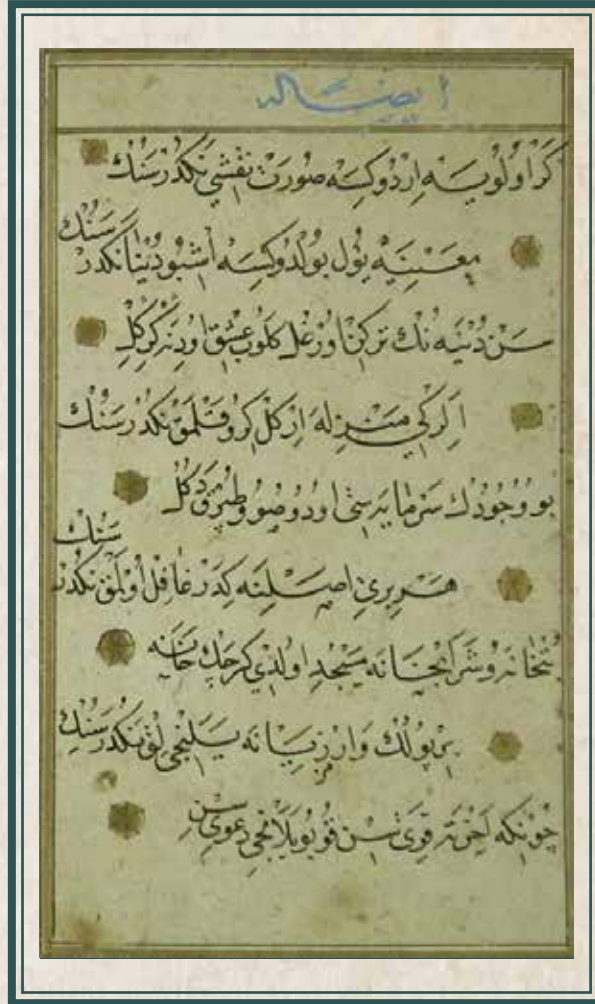 كَرْ اُولُويَسَه اِرْدُوكِسَه صُورَتْ نَقْشِى نَكْدُرْ سَنُكْ
مَعْنِيَه يُولْ بُولْدُوكِسَه اُشْبُو دُنْيَا نَكْدُرْ سَنُكْ
سَنْ دُنْيَه نُكْ تَرْكِنْ اُورْغِلْ كَلُوبْ عِشْقْ اُودِنَه كِرْكِلْ
اِلَرْكِى مَنْزِلَه اِرْكِلْ كِرُو قَلْمَقْ نَكْدُرْ سَنُكْ
بُو وُجُودُكْ سَرْمَايَه سِى اُودُ و صُو و طُپْرَقْ دَكُلْ
هَرْ بِرِى اَصْلِنَه كِدَرْ غَافِلْ اُولْمَقْ نَكْدُرْ سَنُكْ
بُتْخَانَه و شَرَابْخَانَه مَسْجِدْ اُولْدِى كَرْچَكْ جَانَه
بِرْ پُولُكْ وَارْمَزْ زِيَانَه يَلَنْجِى لُقْ نَكْدُرْ سَنُكْ
چُونْكِه اَخِرَتْ قَوِى سِنْ قُو بُو يَلَانْجِى دَعْوِى سِنْ